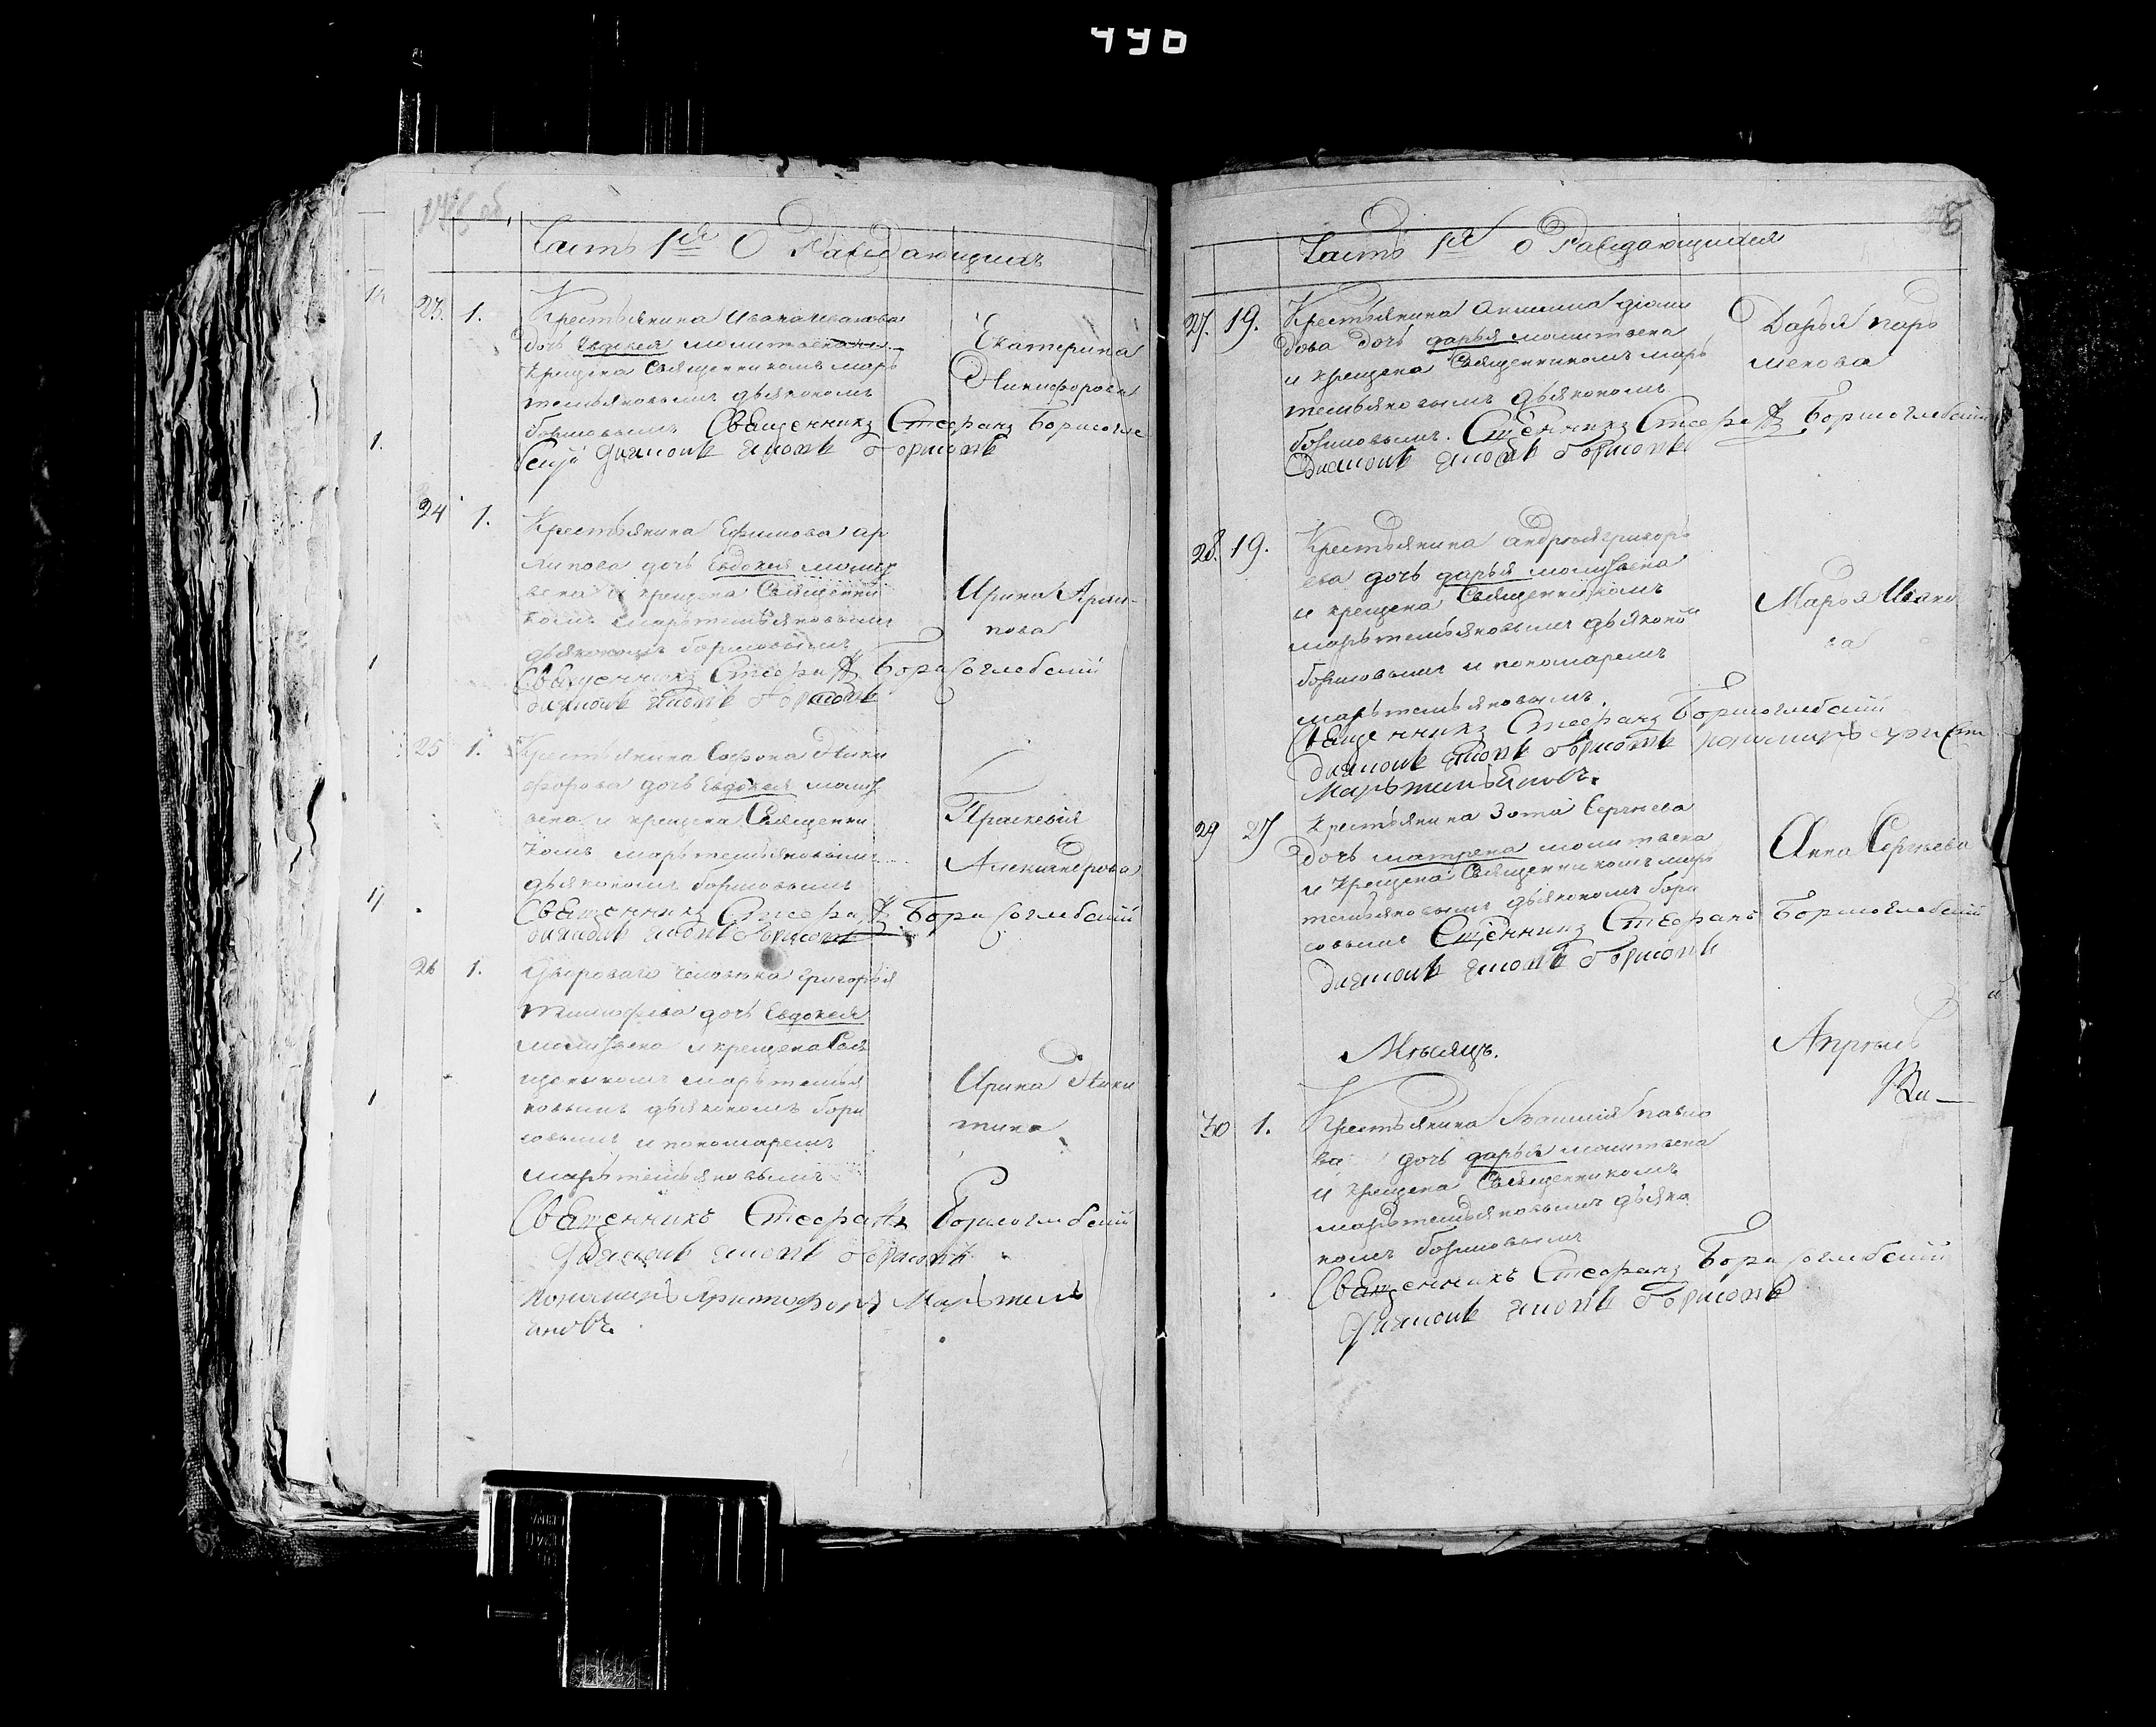 496
Часть 1я О Раждающихъ
23. 1. Крестьянина Ивана Иванова
дочь Евдокея молитвена
Крещена Священникомъ марь
темьяновымъ дьякономъ
борисовымъ Священникъ Стефанъ Борисогле
бский диаконъ борисовъ
Екатерина
Никифорова
1.
24 1. Крестьянина Ефимова ар
хипова дочь Евдокея молит
вена и крещена Священни
комъ мартемьяновымъ
дьякономъ борисовымъ
Священникъ Стефанъ Борисоглебский
диаконъ борисовъ
Ирина Архи-
пова
1
25 1. Крестьянина Софона Ники
форова дочь Евдокея молит
вена и крещена Священни
комъ марьтемьяновымъ
дьякономъ борисовымъ
Священникъ Стефанъ Борисоглебский
диаконъ борисовъ
Прасковья
Александрова
26 1. Дворового человека григорья
тимофева дочь Евдокея
молитвена и крещена Свя
щеникомъ марьтемья
новымъ дьякономъ бори
совымъ и пономаремъ
марьтемьяновымъ
Священникъ Стефанъ Борисоглебский
Диаконъ борисовъ
пономарь Христофоръ Марьтемь
яновъ.
Ирина Ники
тина
1
Часть 1я о Раждающихся
27. 19. Крестьянина
дова дочь дарья молитвена
и крещена Священникомъ марь
темьяновымъ дьякономъ
борисовымъ. Сщенникъ Стефанъ Борисоглебский
Диаконъ борисовъ
Дарья парь
менова
28. 19. Крестьянина андрея григорь
ева дочь дарья молитвена
и крещена Священникомъ
марьтемьяновымъ дьяконо
борисовымъ и пономаремъ
марьтемьяновымъ.
Священникъ Стефанъ Борисоглебский
диаконъ борисовъ пономарь
Марьтемьяновъ.
Марья Ивано
ва
29 27 Крестьянина Зота Сергеева
дочь матрена молитвена
и крещена Священникомъ марь
темьяновымъ дьякономъ бори
совымъ Сщенникъ Стефанъ Борисоглебский
диаконъ борисовъ
Анна Сергеева
Месяцъ. Апрель
30 1. Крестьянина Василия павло
ва дочь дарья молитвена
и крещена Священникомъ
марьтемьяновымъ дьяко
номъ борисовымъ
Священникъ Стефанъ Борисоглебский
Диаконъ борисовъ